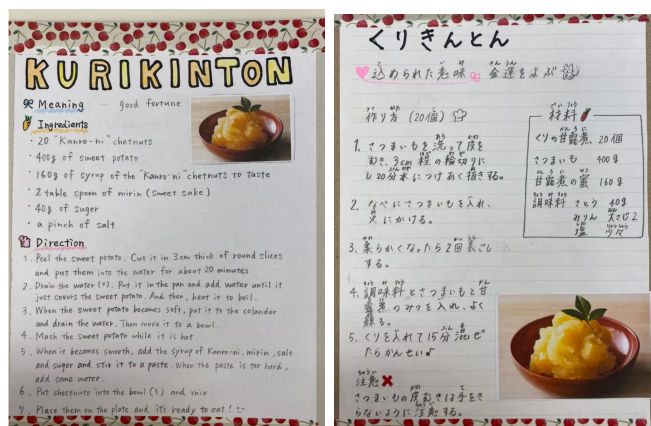 KURIKINTON
Meaning ... good fortune
Ingredients
・20 "Kanro-ni" chetnuts
・400g of sweet potato
・160g of syrup of the "Kanro-ni" chetnuts to taste
・2 table spoon of mirin (sweet sake)
・40g of suger
・a pinch of salt
Direction
1. Peel the sweet potato. Cut it in 3cm thick of round slices
and put them into the water for about 20 minutes
2. Drain the water (1). Put it in the pan and add water until it
just covers the sweet potato. And then, heat it to boil.
3. When the sweet potato becomes soft, put it to the colander
and drain the water. Then move it to a bowl.
4. Mash the sweet potato while it is hot.
5. When it becomes smooth, add the syrup of Kanro-ni, mirin, salt
and suger and stir it to a paste. When the paste is too hard,
add some water.
6. Put chestnuts into the bowl (5) and mix.
7. Place them on the plate and it's ready to eat!
くりきんとん
込められた意味 金運をよぶ
作り方 (20個)
1. さつまいもを洗って皮を
むき、3cm程の輪切りに
し20分水につけあく抜きする。
2. なべにさつまいもを入れ、
火にかける。
3. 柔らかくなったら2回裏ごし
する。
4. 調味料とさつまいもと甘
露煮のみつを入れ、よく
練る。
5. くりを入れて15分混ぜ
たらかんせい♪
注意
さつまいもの皮むきは手をき
らないように注意する。
材料
くりの甘露煮 20個
さつまいも 400g
甘露煮の蜜 160g
調味料 さとう 40g
みりん 大さじ2
塩 少々